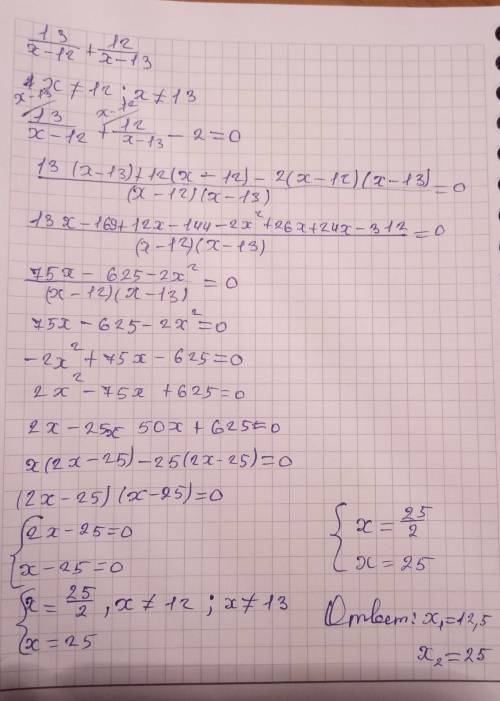 13/(x-12) + 12/(x-13)
x ≠ 12 ; x ≠ 13
x-13 x-12
13/(x-12) + 12/(x-13) - 2 = 0
(13(x-13)+12(x-12)-2(x-12)(x-13))/((x-12)(x-13)) = 0
(13x-169+12x-144-2x²+26x+24x-312)/((x-12)(x-13)) = 0
(75x-625-2x²)/((x-12)(x-13)) = 0
75x-625-2x²=0
-2x²+75x-625=0
2x²-75x+625=0
2x-25x 50x+625=0
x(2x-25)-25(2x-25)=0
(2x-25)(x-25)=0
{2x-25=0
x-25=0
{x=25/2, x≠12 ; x≠13
x=25
{x=25/2
x=25
Ответ: x₁=12,5
x₂=25